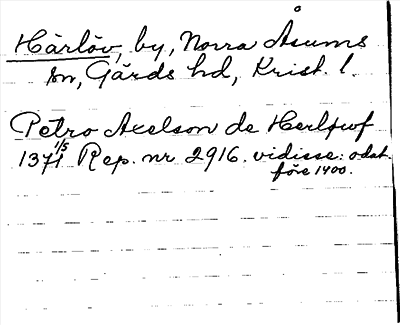 Härlöv, by, Norra Åsums
sn, Gärds hd, Krist. l.
Petro Axelson de Herlfwf
1371 1/5 Rep. nr 2916. vidisse: odat.
före 1400.